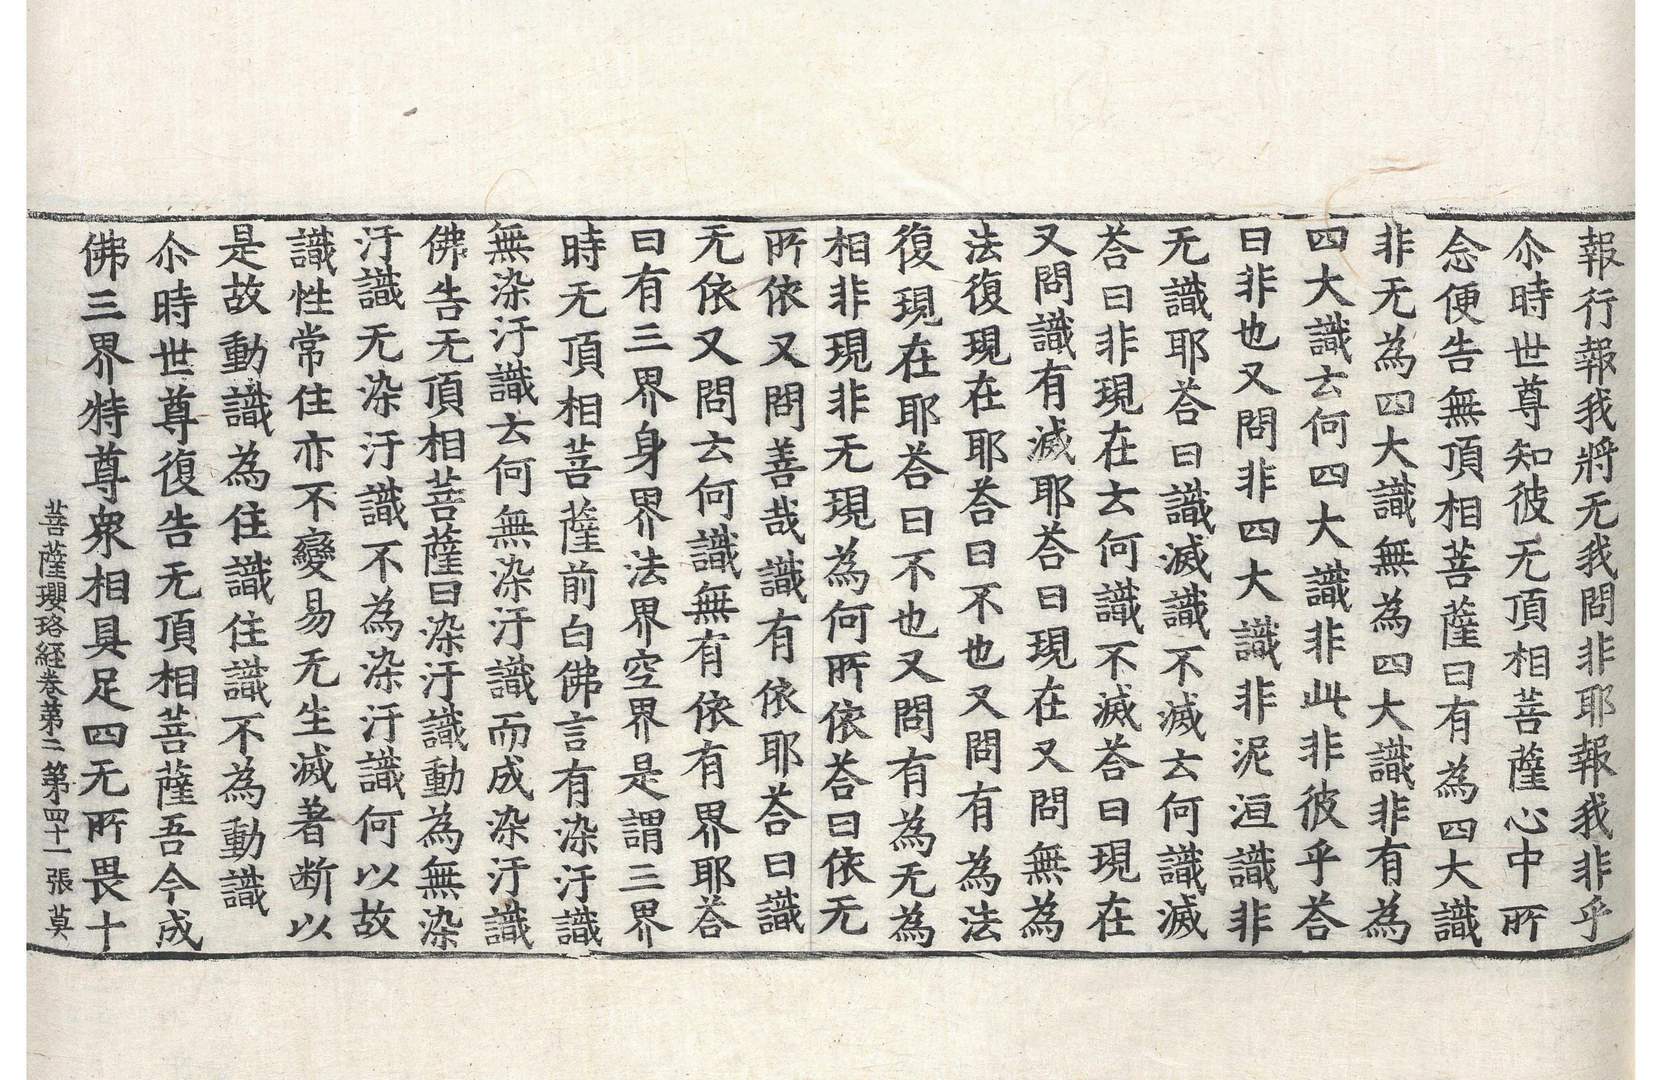 報行報我將无我問非耶報我非乎
尒時世尊知彼无頂相菩薩心中所
念便告無頂相菩薩曰有為四大識
非无為四大識無為四大識非有為
四大識云何四大識非此非彼乎荅
曰非也又問非四大識非泥洹識非
无識耶荅曰識滅識不滅云何識滅
荅曰非現在云何識不滅荅曰現在
又問識有滅耶荅曰現在又問無為
法復現在耶荅曰不也又問有為法
復現在耶荅曰不也又問有為无為
相非現非无現為何所依荅曰依无
所依又問善哉識有依耶荅曰識
无依又問云何識無有依有界耶荅
曰有三界身界法界空界是謂三界
時无頂相菩薩前白佛言有染汙識
無染汙識云何無染汙識而成染汙識
佛告无頂相菩薩曰染汙識動為無染
汙識无染汙識不為染汙識何以故
識性常住亦不變易无生滅著断以
是故動識為住識住識不為動識
尒時世尊復告无頂相菩薩吾今成
佛三界特尊衆相具足四无所畏十
菩薩瓔珞経卷第二 第四十一張 莫